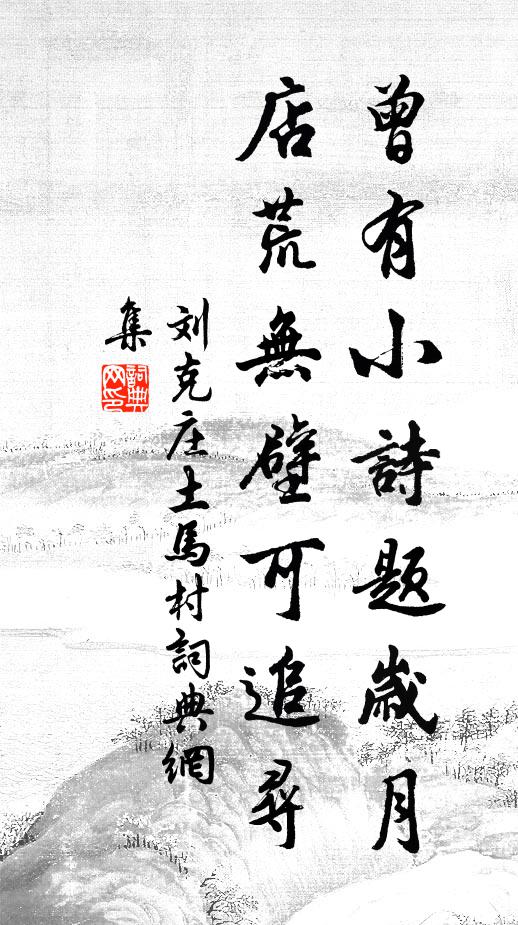 曾有小詩題歲月
店荒無壁可追尋
刘克庄土馬村詞典網
集
詞典
网印